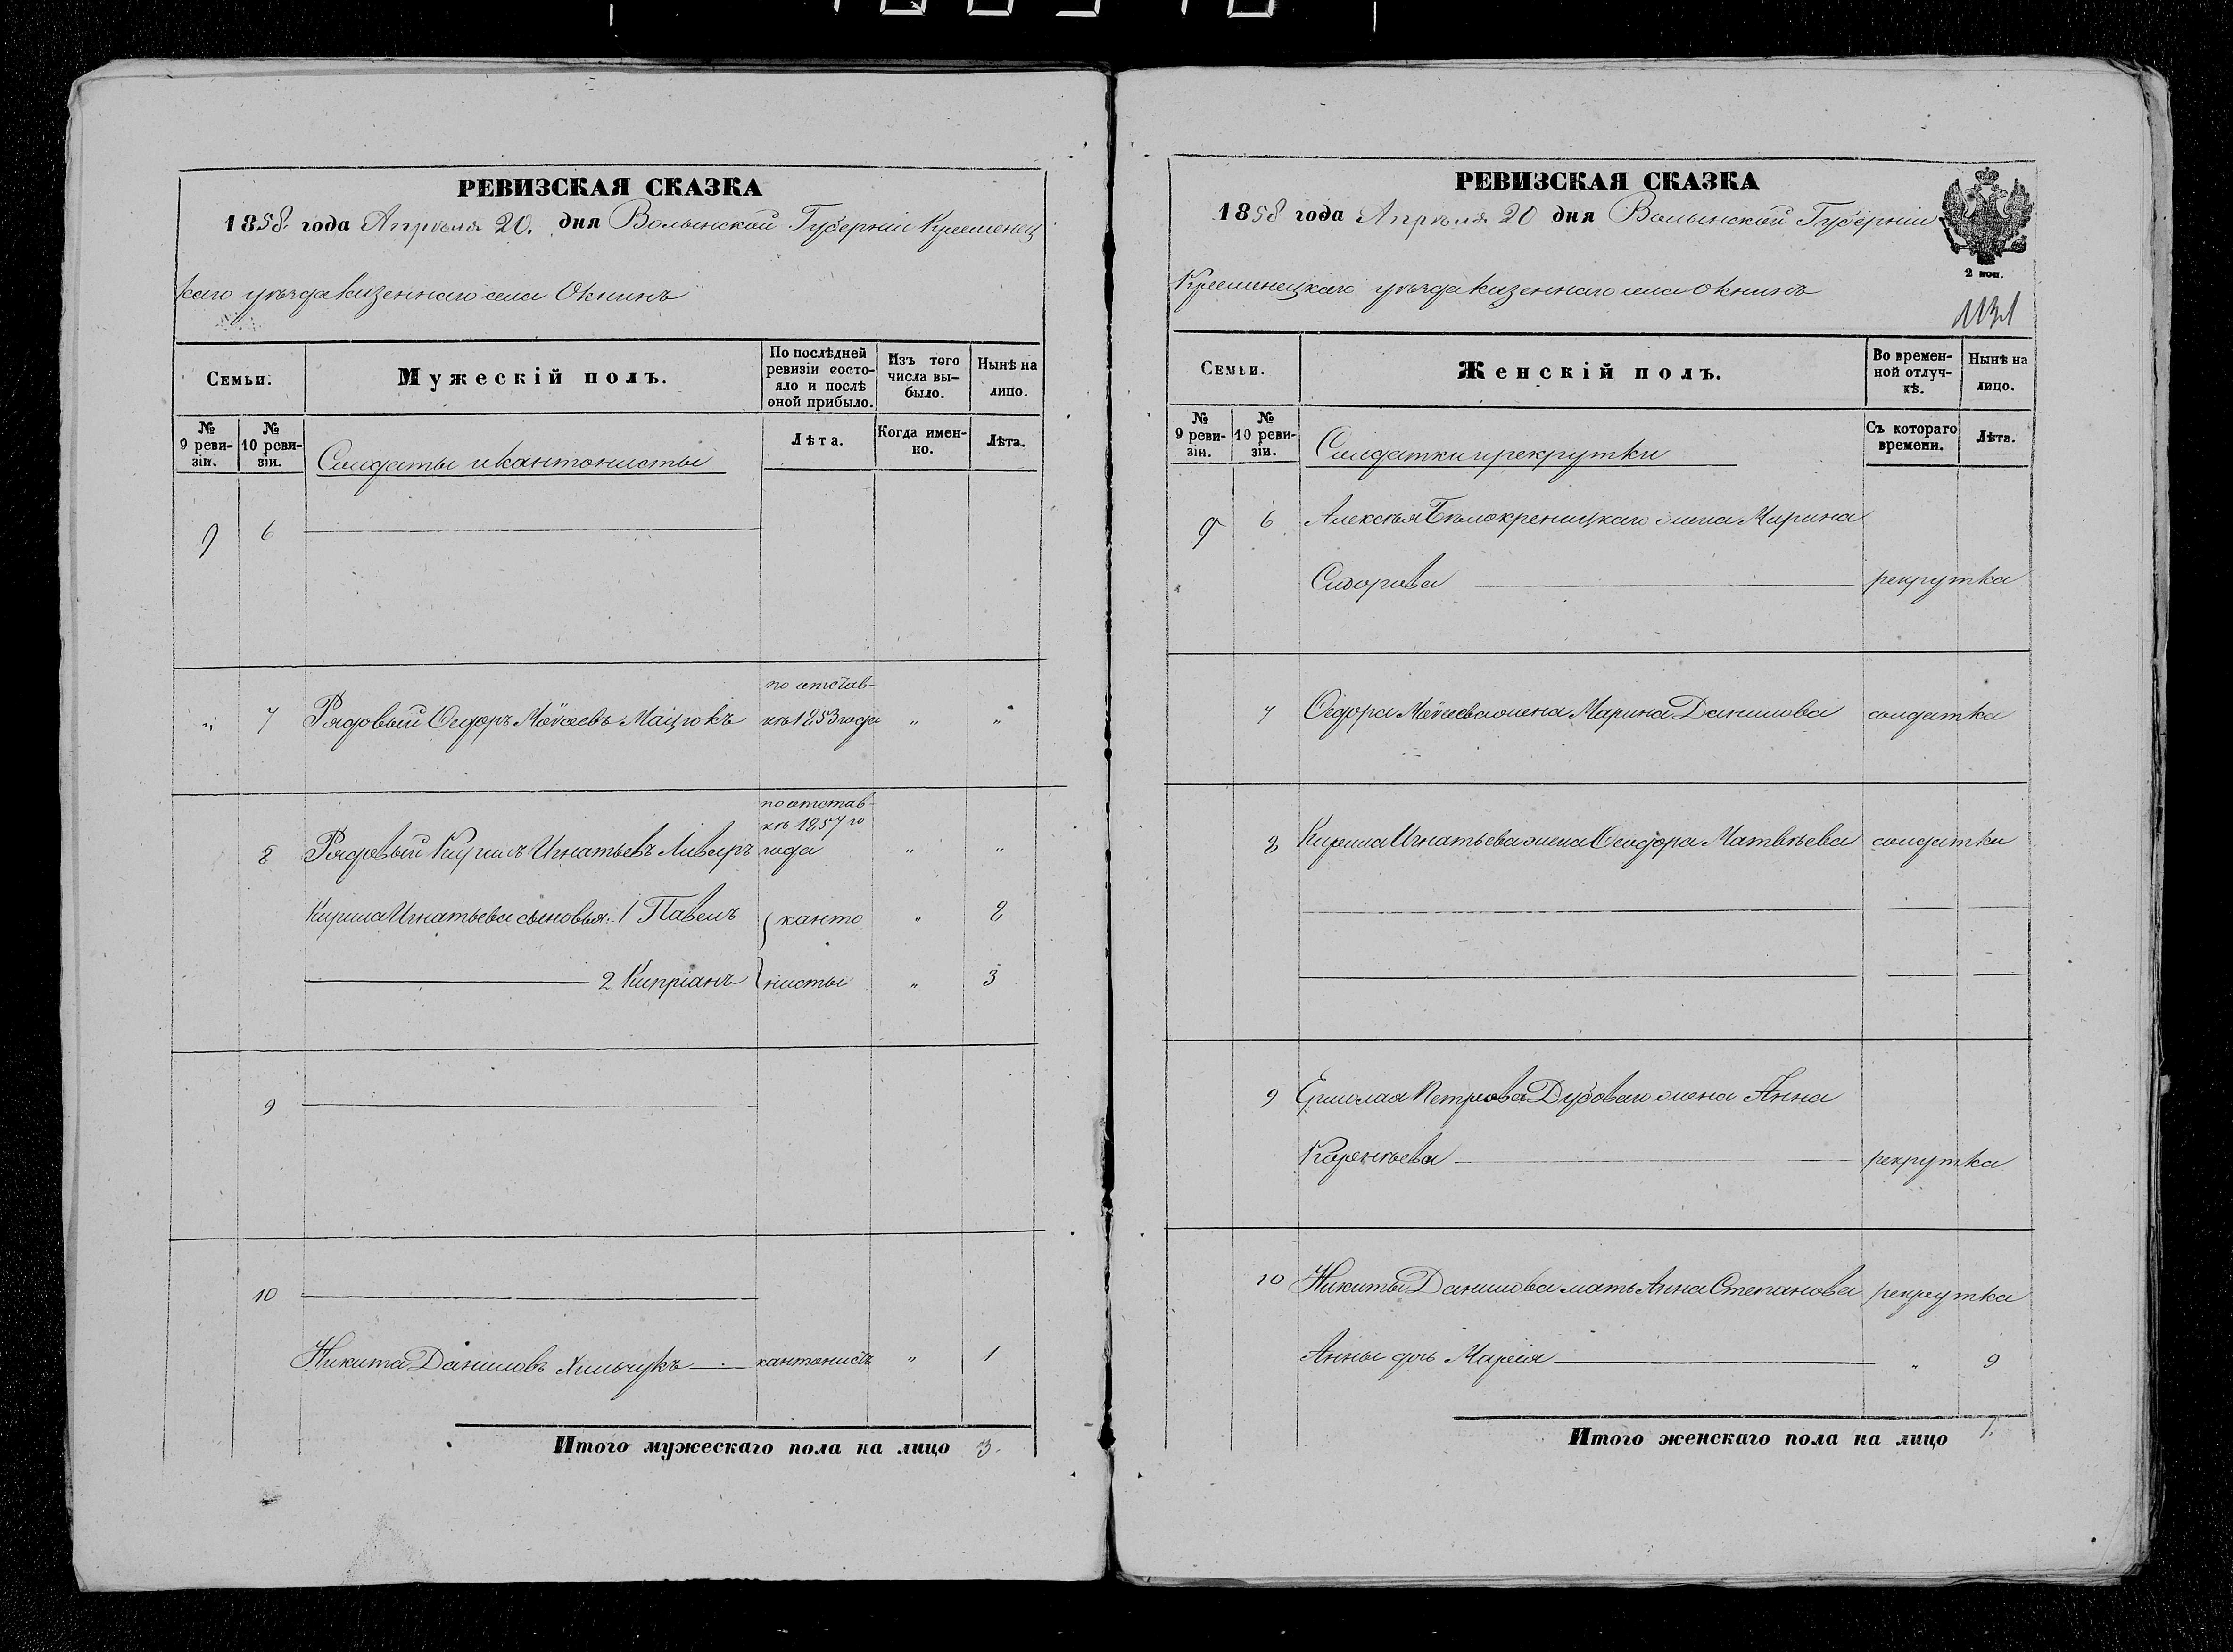 РЕВИЗСКАЯ СКАЗКА
1858 года Апрѣля 20. дня Волынской Губерніи Кременец
каго уѣзда казеннаго села Окнинъ
Семьи.
Мужескій полъ.
По послѣдней ревизіи состояло и послѣ оной прибыло.
Изъ того числа выбыло.
Нынѣ на лицо.
№ 9 ревизіи.
№ 10 ревизіи.
Солдаты и кантонисты
Лѣта.
Когда именно.
Лѣта.
9 6
" 7 Рядовый Ѳедоръ Моѵсеевъ Маціюкъ по отставкѣ 1853 года " "
8 Рядовый Кирилъ Игнатьевъ по отставкѣ 1857 го года " "
Кирила Игнатьева сыновья 1 Павелъ канто " 8
2 Кипріанъ нисты " 3
9
10
Никита Даниловъ Хильчукъ кантонистъ " 1
Итого мужескаго пола на лицо 3.
РЕВИЗСКАЯ СКАЗКА
1858 года Апрѣля 20 дня Волынской Губерніи
2 коп.
Кременецкаго уѣзда казеннаго села Окнинъ
Семьи.
Женскій полъ.
Во временной отлучкѣ.
Нынѣ на лицо.
№ 9 ревизіи.
№ 10 ревизіи.
Солдатки и рекрутки
Съ котораго времени.
Лѣта.
9 6 Алексѣя Бѣлокреницкаго жена Марина
Сидорова рекрутка
7 Ѳедора Моѵсеева жена Марина Данилова солдатка
8 Кирила Игнатьева жена Ѳеодора Матвѣева солдатка
9 Ермолая Петрова Дубоваго жена Анна
Корнѣева рекрутка
10 Никиты Данилова мать Анна Степанова рекрутка
Анны дочь Марія " 9
Итого женскаго пола на лицо 1.